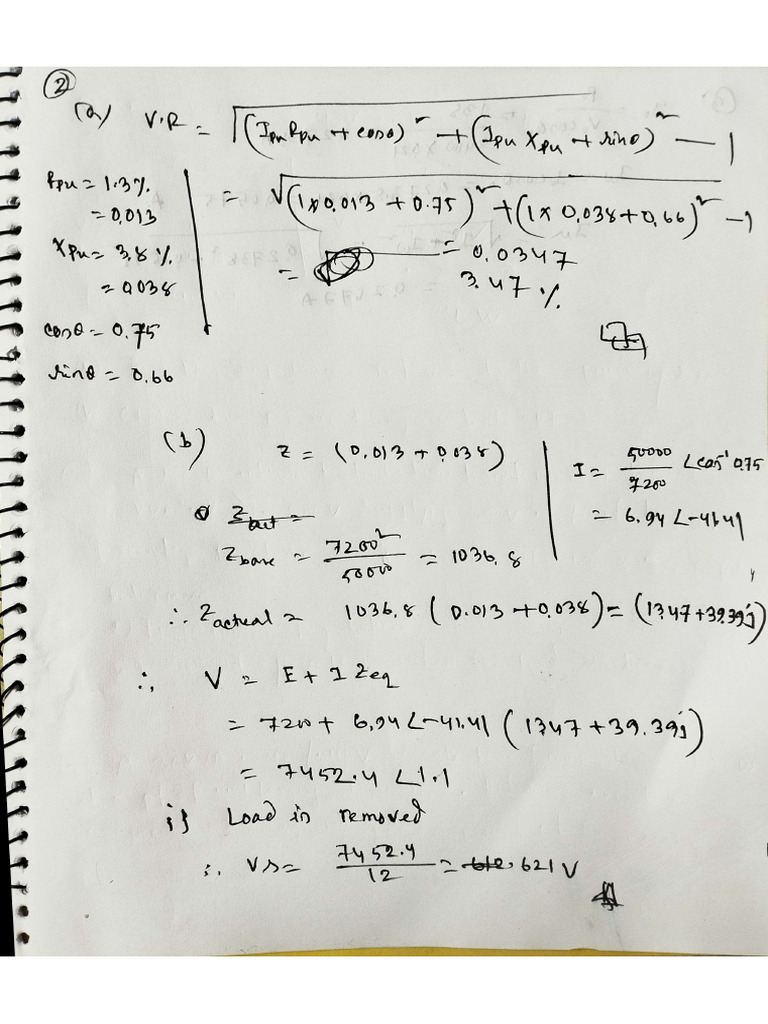 ②
(a) V.R = √(I_pu R_pu + cosθ)² + (I_pu X_pu + sinθ)² − 1
R_pu = 1.3%
= 0.013
X_pu = 3.8%
= 0.038
cosθ = 0.75
sinθ = 0.66
= √(1×0.013 + 0.75)² + (1×0.038+0.66)² − 1
= 0.0347
=
3.47%
(b) Z = (0.013 + 0.038)
I = 50000/7200 ∠cos⁻¹ 0.75
= 6.94 ∠-41.41
Z_base = 7200²/50000 = 1036.8
∴ Z_actual = 1036.8 (0.013 + 0.038) = (13.47+39.39j)
∴ V = E + I Zeq
= 7200 + 6.94 ∠-41.41 (13.47 + 39.39j)
= 7452.4 ∠1.1
if Load is removed
∴ Vs = 7452.4/12 = 621 V